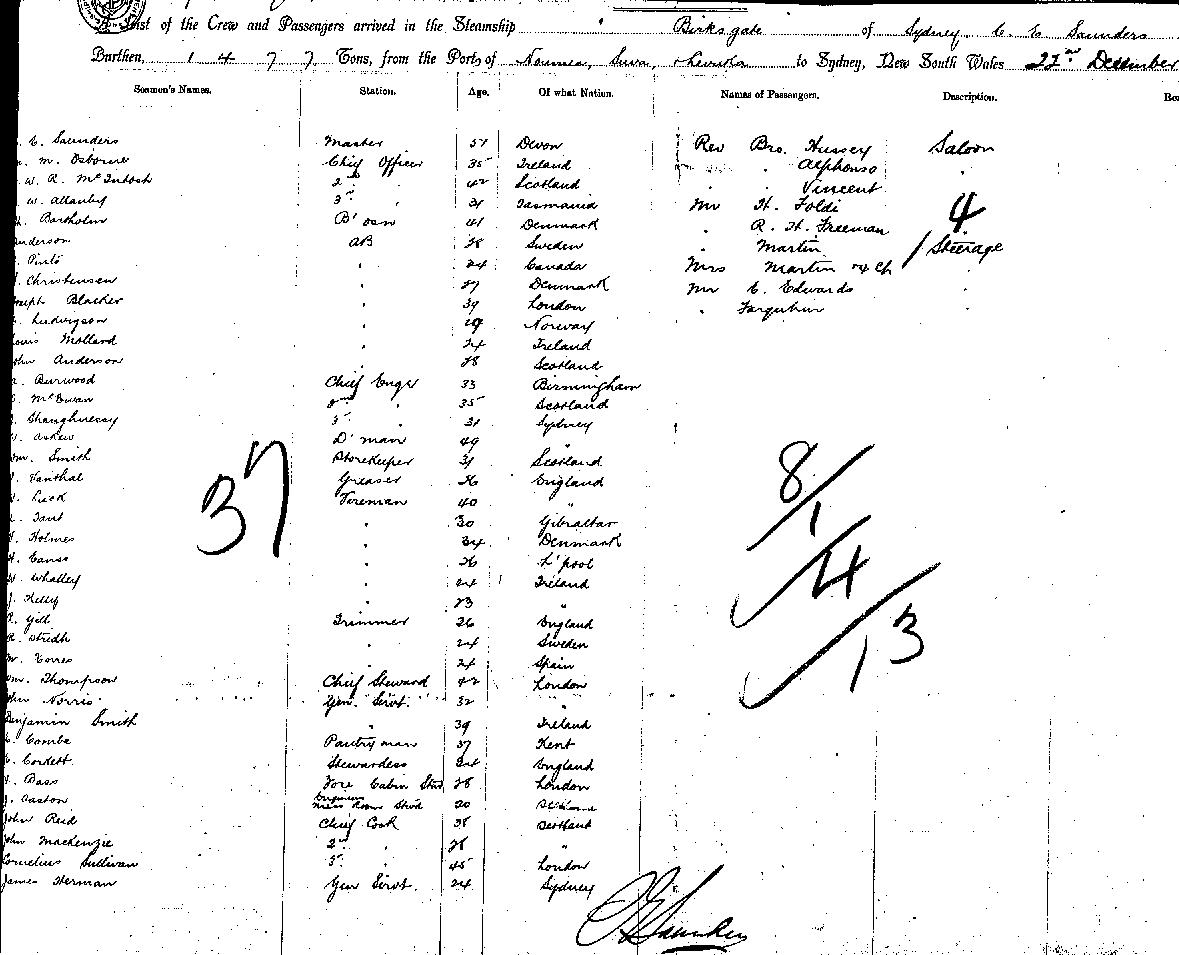 List of the Crew and Passengers arrived in the Steamship Birksgate of Sydney, C. E Saunders
Burthen, 1477 Tons, from the Ports of Noumea, Suva, Levuka to Sydney, New South Wales 22nd December
Seamen's Names. Station. Age. Of what Nation. Names of Passengers. Description.
E. Saunders Master 57 Devon Rev Bro. Hussey Saloon
M. Osborne Chief Officer 35 Ireland Alphonso
W. R. McIntosh 2nd 42 Scotland Vincent
W. Allanby 3rd 31 Tasmania Mr H. Foldi 4
Bartholm B'osn 41 Denmark R. H. Freeman
Anderson AB 28 Sweden Martin / Steerage
Pinto 24 Canada Mrs Martin & Ch
Christensen 27 Denmark Mr C. Edwards
Joseph Blacker 39 London Farquhar
Ludwigson 29 Norway
Louis Molland 24 Ireland
John Anderson 28 Scotland
Burwood Chief Engr 33 Birmingham
McEwan 2nd 35 Scotland
Shaughnessy 3rd 31 Sydney
Askew D'man 49 "
Wm. Smith Storekeeper 31 Scotland
Vanthal Greaser 26 England
Luck Fireman 40 "
Tant 30 Gibraltar
Holmes 34 Denmark
26 L'pool
W. Whalley 24 Ireland
J. Kelly 23 "
R. Gill Trimmer 26 England
R. Stredh 24 Sweden
M. Torres 24 Spain
Wm. Thompson Chief Steward 42 London
John Norris Gen. Servt. 32 "
Benjamin Smith " 39 Ireland
Combe Pantryman 37 Kent
Corkett Stewardess 24 England
Bass Fore Cabin Stwd 28 London
J. Easton Engineers Mess Room Stwd 20
John Reid Chief Cook 38 Scotland
John Mackenzie 2nd " 28 "
Cornelius Sullivan 3rd " 45 London
James Herman Gen Servt. 24 Sydney
37
8/
1
4
/13
C E Saunders